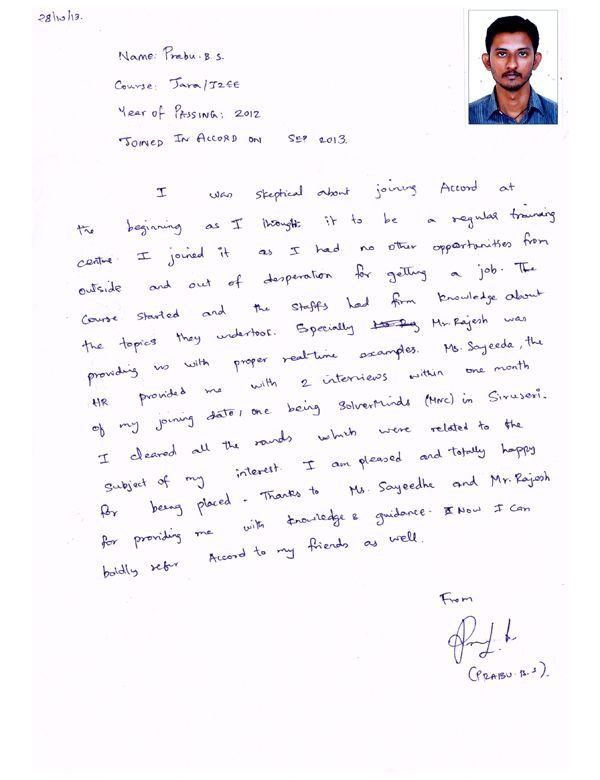 28/10/13.
Name: Prabu. B. S.
Course: Java/J2EE
Year of Passing: 2012
Joined In Accord on Sep 2013.
I was skeptical about joining Accord at
the beginning as I thought it to be a regular training
centre. I joined it as I had no other opportunities from
outside and out of desperation for getting a job. The
Course started and the staffs had firm knowledge about
the topics they undertook. Especially Mr. Rajesh was
providing us with proper real-time examples. Ms. Sayeeda, the
HR provided me with 2 interviews within one month
of my joining date, one being SolverMinds (MNC) in Siruseri.
I cleared all the rounds which were related to the
subject of my interest. I am pleased and totally happy
for being placed. Thanks to Ms. Sayeedha and Mr. Rajesh
for providing me with knowledge & guidance. Now I can
boldly refer Accord to my friends as well.
From
(PRABU. B. S).